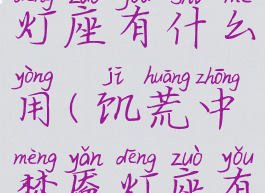 灯座有什么
yòng jī huāng zhōng
用(饥荒中
mèng yǎn dēng zuò yǒu
梦魇灯座有